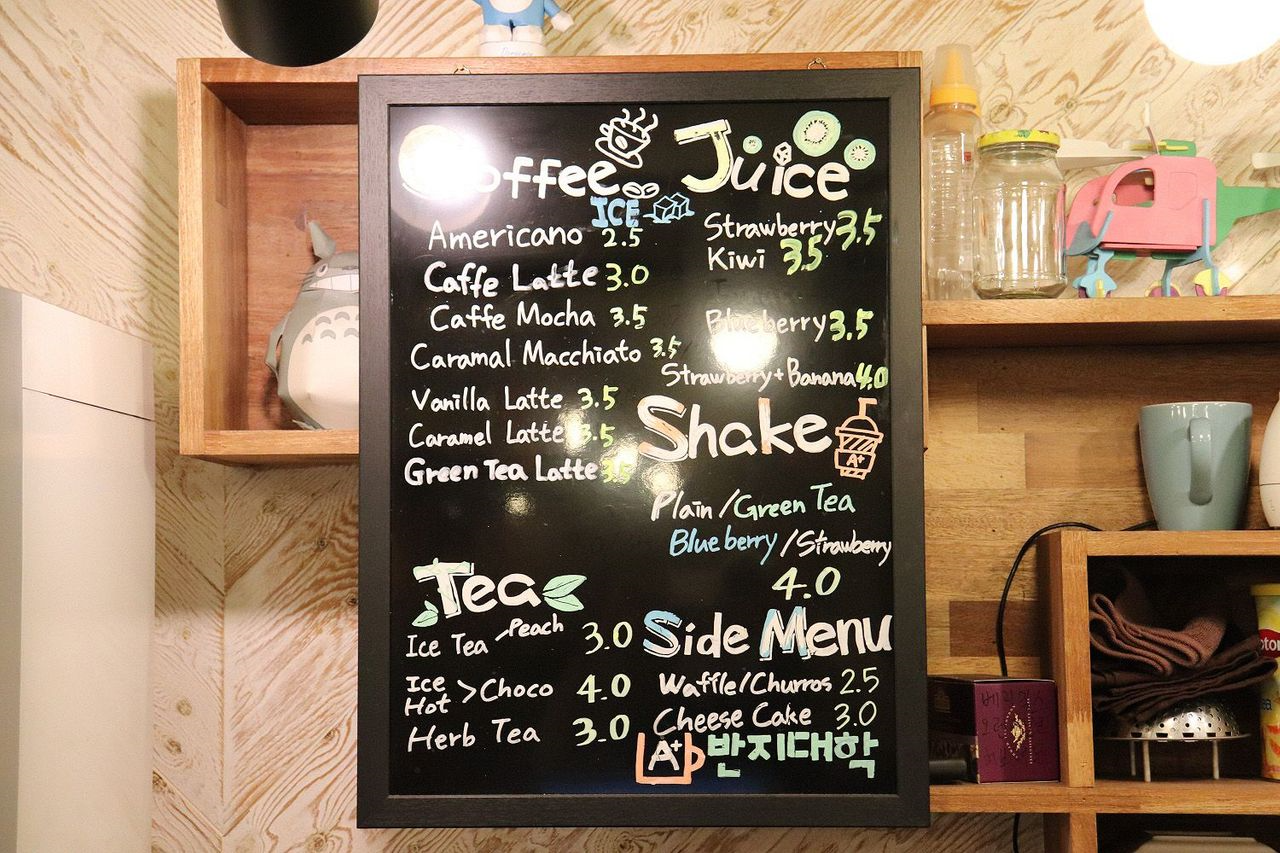 Coffee
ICE
Americano 2.5
Caffe Latte 3.0
Caffe Mocha 3.5
Caramal Macchiato 3.5
Vanilla Latte 3.5
Caramel Latte 3.5
Green Tea Latte 3.5
Tea
Ice Tea - Peach 3.0
Ice
Hot > Choco 4.0
Herb Tea 3.0
Juice
Strawberry 3.5
Kiwi 3.5
Blueberry 3.5
Strawberry + Banana 4.0
Shake
A+
Plain / Green Tea
Blueberry / Strawberry
4.0
Side Menu
Waffle/Churros 2.5
Cheese Cake 3.0
A+ 반지대학